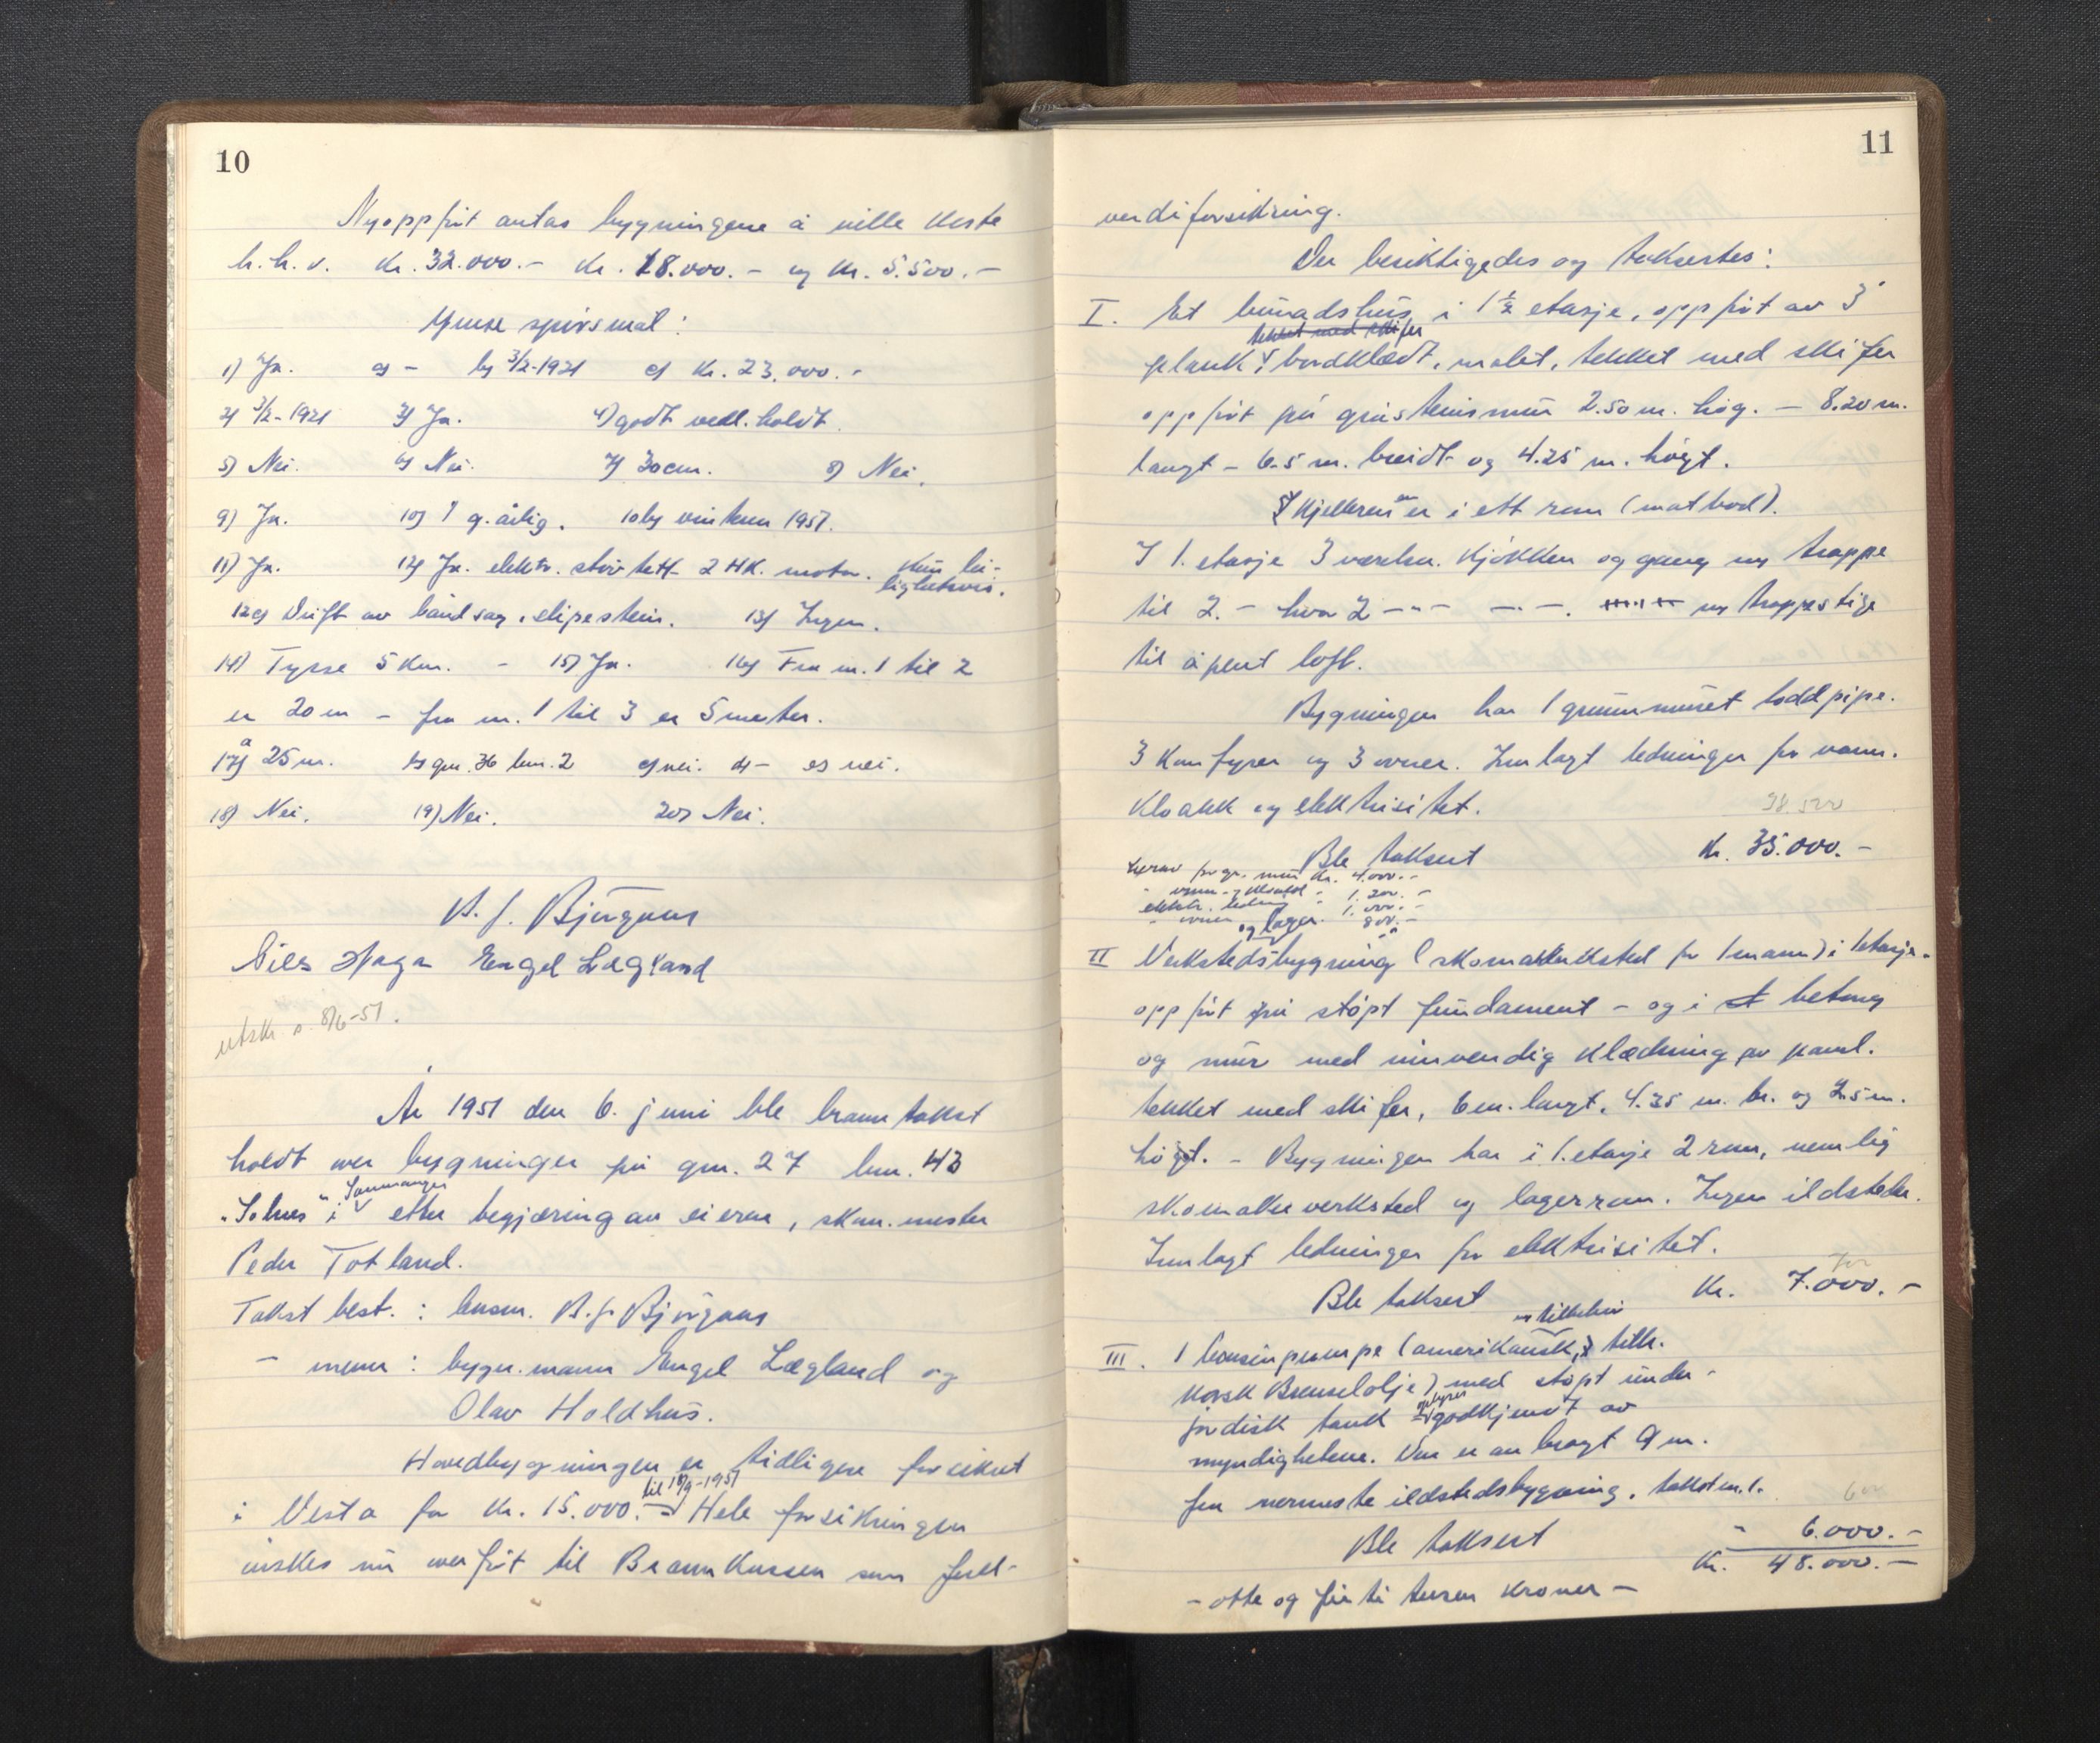 10
Nyoppført antas bygningene å ville koste
h.h.v. kr. 32.000.- kr. 18.000.- og kr. 5.500.-
Ymse spørsmål:
1) Ja. a) - b) 3/2-1921 c) kr. 23.000.-
2) 3/2-1921 3) Ja. 4) godt vedl.holdt.
5) Nei. 6) Nei. 7) 30 cm. 8) Nei.
9) Ja. 10) 1 g. årlig. 10b) vinteren 1951.
11) Ja. 12) Ja. elektr. støv tett 2 HK. motor. Kun lei-
lighetsvis.
12c) Drift av båndsag, slipestein. 13) Ingen.
14) Tysse 5 km. - 15) Ja. 16) Fra m. 1 til 2
er 20 m - fra m. 1 til 3 er 5 meter.
17) a 25 m. b) gnr. 36 bnr. 2 c) nei. d) - e) nei.
18) Nei. 19) Nei. 20) Nei.
B. J. Bjørgaas
Nils Haga Engel Lægland
utskr. s. 8/6-51.
År 1951 den 6. juni ble branntakst
holdt over bygninger på gnr. 27 bnr. 43
"Solnes" i Samnanger etter begjæring av eieren, skom.mester
Peder Totland.
Takst best.: lensm. B. J. Bjørgaas
- menn: bygn.mann Engel Lægland og
Olav Holdhus.
Hovedbygningen er tidligere forsikret
i Vesta for kr. 15.000.- til 18/9-1951 Hele forsikringen
ønskes nå overført til Brannkassen som full-
11
verdiforsikring.
Der besiktigedes og taksertes:
I. Et bunadshus i 1 1/2 etasje, oppført av 3"
tekket med skifer
plank, bordklædt, malet, tekket med skifer
oppført på gråsteinsmur 2.50 m. høg. - 8.20 m.
langt - 6.5 m. breidt og 4.25 m. høgt.
Kjelleren er i ett rom (matbod).
I 1. etasje 3 værelser. Kjøkken og gang og trappe
til 2. - hvor 2 -"- -"-. og trappestige
til åpent loft.
Bygningen har 1 grunnmuret toddpipe.
3 komfyrer og 3 ovner. Innlagt ledninger for vann.
kloakk og elektrisitet.
38.500
Ble taksert kr. 35.000.-
Herav for gr. mur kr. 4.000.-
" vann- og kloakk " 1.200.-
elektr. ledning " 1.000.-
" ovner 800.-
II Verkstedsbygning og lager (skomakerverksted for 1 mann) i 1 etasje.
oppført på støpt fundament - og i betong
og mur med innvendig klædning av panel.
tekket med skifer, 6 m. langt, 4.35 m. br. og 2.5 m.
høgt. - Bygningen har i 1. etasje 2 rom, nemlig
skomakerverksted og lagerrom. Ingen ildsteder.
Innlagt ledninger for elektrisitet.
Ble taksert kr. 7.000.-
III. 1 bensinpumpe (amerikansk, m tilbehør tilh.
Norsk Brenselolje) med støpt under-
jordisk tank godkjendt av
myndighetene. Den er anbragt 9 m.
fra nermeste ildstedsbygning, takst m. 1.
Ble taksert " 6.000.-
kr. 48.000.-
- otte og førti tusen kroner -